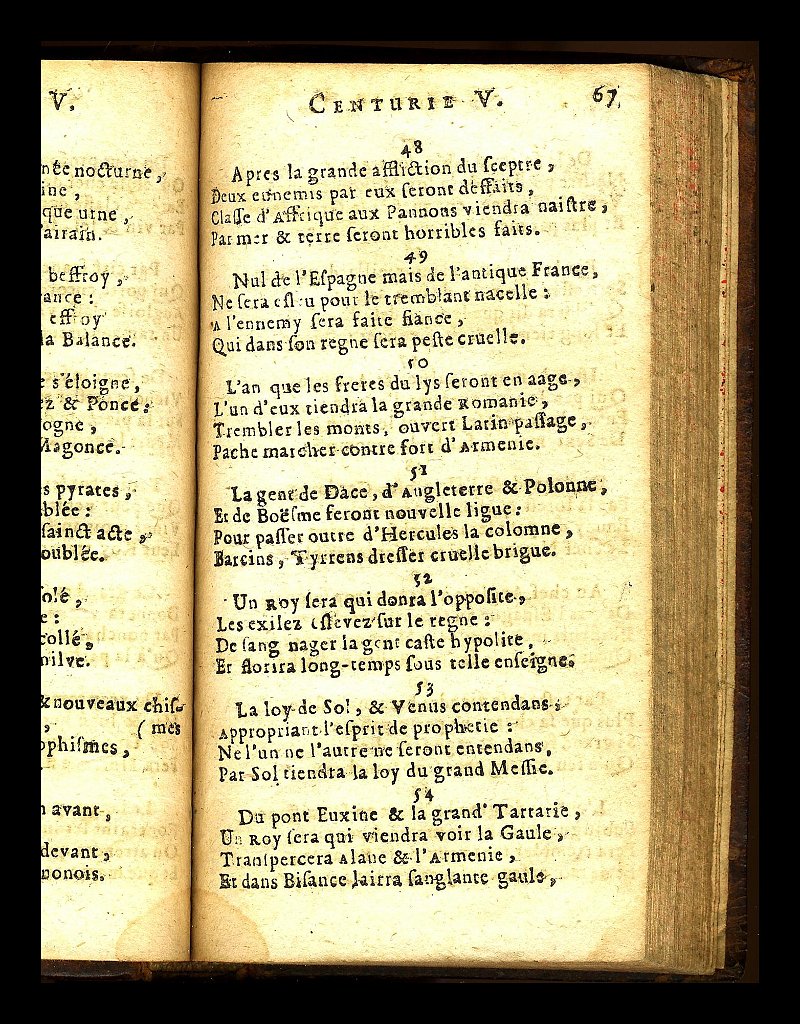 V.
nocturne,
ine,
que urne,
'airain.
beffroy,
ance:
effroy
la Balance.
s'éloigne,
ez & Ponce:
ogne,
Magonce.
s pyrates,
blée:
ſainct acte,
oublée.
ſolé,
e:
collé,
& nouveaux chiſ-
, (mes
ophiſmes,
n avant,
devant,
nonois.
CENTURIE V. 67
48
Apres la grande affliction du ſceptre,
Deux ennemis par eux ſeront deffaits,
Claſſe d'Affrique aux Pannons viendra naiſtre,
Par mer & terre ſeront horribles faits.
49
Nul de l'Eſpagne mais de l'antique France,
Ne ſera eſleu pour le tremblant nacelle:
A l'ennemy ſera faite fiance,
Qui dans ſon regne ſera peſte cruelle.
50
L'an que les freres du lys ſeront en aage,
L'un d'eux tiendra la grande Romanie,
Trembler les monts, ouvert Latin paſſage,
Pache marcher contre fort d'Armenie.
51
La gent de Dace, d'Angleterre & Polonne,
Et de Boëſme feront nouvelle ligue:
Pour paſſer outre d'Hercules la colomne,
Barcins, Tyrrens dreſſer cruelle brigue.
52
Un Roy ſera qui donra l'oppoſite,
Les exilez eſlevez ſur le regne:
De ſang nager la gent caſte hypolite,
Et florira long-temps ſous telle enſeigne.
53
La loy de Sol, & Venus contendans:
Appropriant l'eſprit de prophetie:
Ne l'un ne l'autre ne ſeront entendans,
Par Sol tiendra la loy du grand Meſſie.
54
Du pont Euxine & la grand' Tartarie,
Un Roy ſera qui viendra voir la Gaule,
Tranſpercera Alane & l'Armenie,
Et dans Biſance lairra ſanglante gaule,